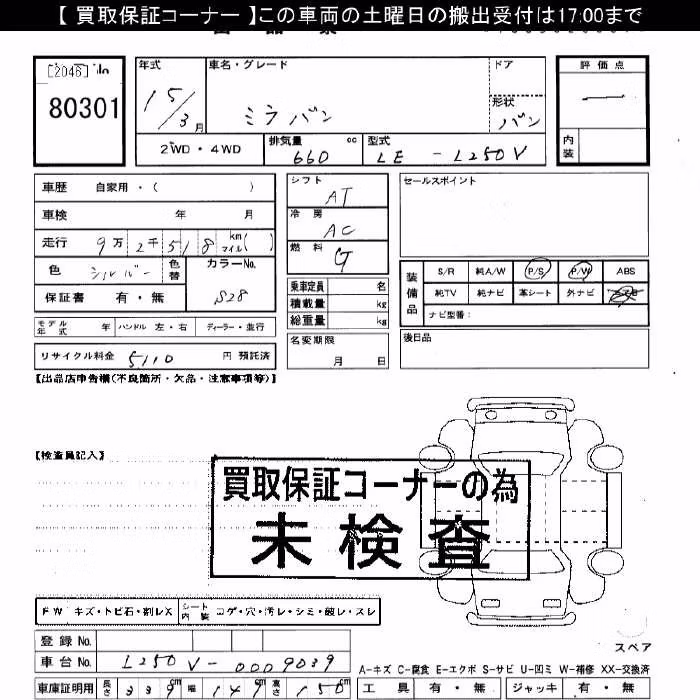 【 買取保証コーナー 】この車両の土曜日の搬出受付は17:00まで
[2046]
80301
年式 車名・グレード ドア 評価点
15/3月 ミラバン 形状 バン
2WD・4WD 排気量 cc 660 型式 LE - L250V 内装
車歴 自家用・( )
車検 年 月
走行 9万2千518 km マイル( )
色 シルバー 色替 カラーNo. S28
保証書 有・無
モデル年式 年 ハンドル 左・右 ディーラー・並行
リサイクル料金 5110 円 預託済
シフト AT
冷房 AC
燃料 G
乗車定員 名
積載量 kg
総重量 kg
名変期限 月 日
セールスポイント
装備品 S/R 純A/W P/S P/W ABS
純TV 純ナビ 革シート 外ナビ
ナビ型番:
後日品
【出品店申告欄(不良箇所・欠品・注意事項等)】
【検査員記入】
買取保証コーナーの為
未検査
FW キズ・トビ石・割レX シート内装 コゲ・穴・汚レ・シミ・破レ・スレ
スペア
登録 No.
車台 No. L250V - 0009039
A-キズ C-腐食 E-エクボ S-サビ U-凹ミ W-補修 XX-交換済
車庫証明用 長さ 339cm 幅 149cm 高さ 150cm 工具 有・無 ジャッキ 有・無